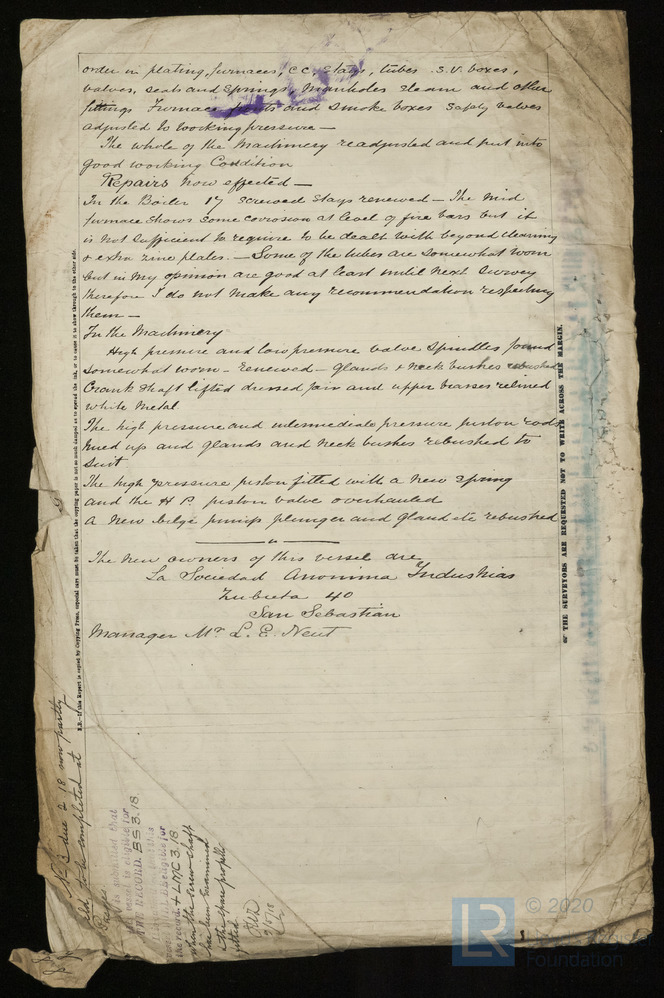 order in plating, furnaces, C C, stays, tubes S.V. boxes,
valves, seats and springs, Manholes steam and other
fittings Furnace and smoke boxes Safety valves
adjusted to working pressure —
The whole of the Machinery readjusted and put into
good working Condition
Repairs now effected —
In the Boiler 17 screwed stays renewed — The Mid
furnace shows some corrosion at level of fire bars but it
is not sufficient to require to be dealt with beyond cleaning
& extra zinc plates. — Some of the tubes are somewhat worn
but in My opinion are good at least until next Survey
therefore I do not make any recommendation respecting
them —
In the Machinery
High pressure and low pressure valve spindles found
somewhat worn — renewed — glands & neck bushes rebushed
Crank shaft lifted dressed fair and upper brasses relined
white metal.
The high pressure and intermediate pressure piston rods
trued up and glands and neck bushes rebushed to
suit
The high pressure piston fitted with a new spring
and the H P. piston valve overhauled
A new bilge pump plunger and gland etc rebushed
The new owners of this vessel are
La Sociedad Anonima Industrias
Zubieta 40
San Sebastian
Manager Mr L. E. Neut
N.B.—If this Report is copied by Copying Press, especial care must be taken that the copying paper is not so much damped as to spread the ink, or to cause it to show through to the other side.
THE SURVEYORS ARE REQUESTED NOT TO WRITE ACROSS THE MARGIN.
No 3 due 2.18 now partly
held, to be completed at
Pasajes
is submitted that
vessel is eligible for
THE RECORD. BS 3.18.
eligible for
the record + LMC 3.18
when the screw shaft
has been examined
& the spare propeller
fitted
9/5/18
© 2020
LR
Lloyd's Register
Foundation